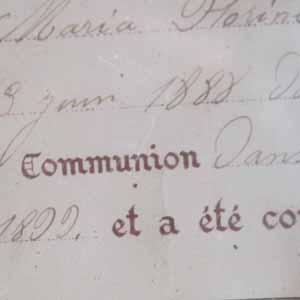 Maria Florin
juin 1888
Communion Dans
1899. et a été co